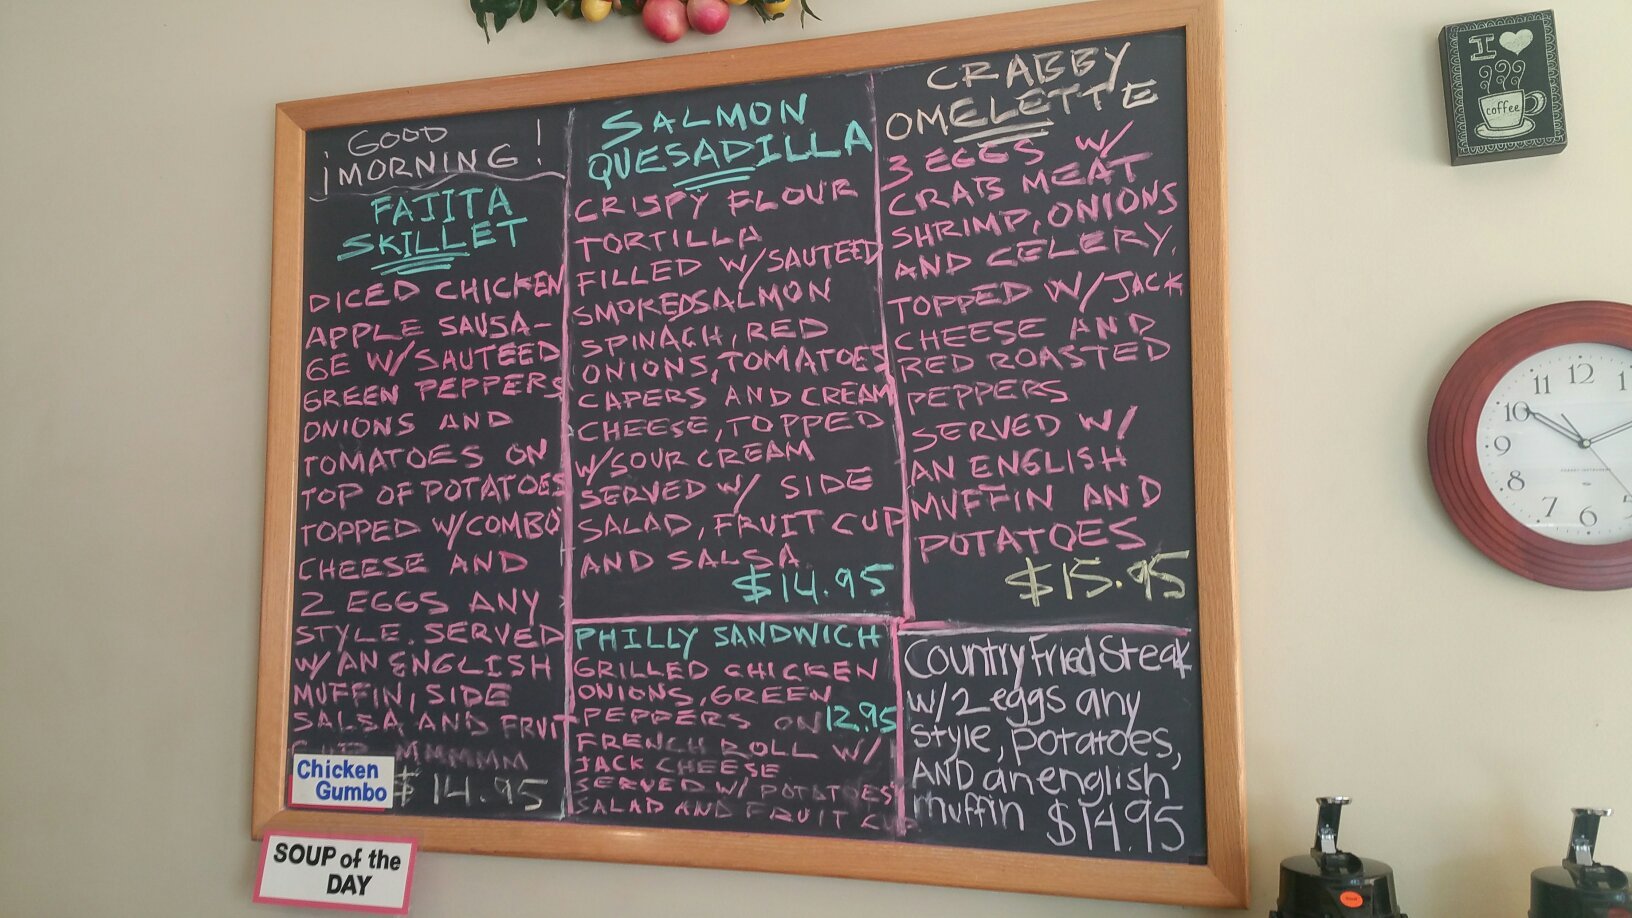 GOOD
¡MORNING!
FAJITA
SKILLET
DICED CHICKEN
APPLE SAUSA-
GE W/SAUTEED
GREEN PEPPERS
ONIONS AND
TOMATOES ON
TOP OF POTATOES
TOPPED W/COMBO
CHEESE AND
2 EGGS ANY
STYLE. SERVED
W/ AN ENGLISH
MUFFIN, SIDE
SALSA AND FRUIT
MMMMM
$14.95
Chicken
Gumbo
SOUP of the
DAY
SALMON
QUESADILLA
CRISPY FLOUR
TORTILLA
FILLED W/SAUTEED
SMOKEDSALMON
SPINACH, RED
ONIONS, TOMATOES
CAPERS AND CREAM
CHEESE, TOPPED
W/SOUR CREAM
SERVED W/ SIDE
SALAD, FRUIT CUP
AND SALSA
$14.95
PHILLY SANDWICH
GRILLED CHICKEN
ONIONS, GREEN
PEPPERS ON 12.95
FRENCH ROLL W/
JACK CHEESE
SERVED W/ POTATOES
SALAD AND FRUIT
CRABBY
OMELETTE
3 EGGS W/
CRAB MEAT
SHRIMP, ONIONS
AND CELERY.
TOPPED W/JACK
CHEESE AND
RED ROASTED
PEPPERS
SERVED W/
AN ENGLISH
MUFFIN AND
POTATOES
$15.95
Country Fried Steak
w/2 eggs any
style, potatoes,
AND an english
muffin $14.95
I
coffee
11 12 1
10
9
8
7 6